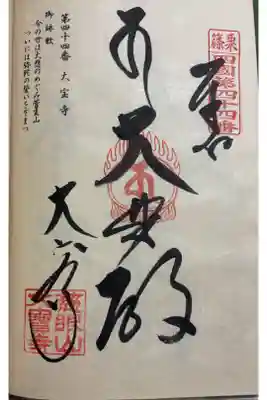 四國第四十四番
奉
大悲殿
大宝寺
菅生山
大寶寺
第四十四番 大宝寺
御詠歌
今の世は大悲のめぐみ菅生山
ついには弥陀の誓いをぞまつ